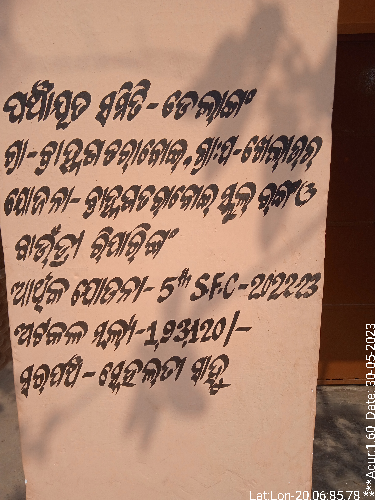 ପଞ୍ଚାୟତ ସମିତି - ଡେଲାଙ୍ଗ
ଗ୍ରା - ବ୍ରାହ୍ମଣ ଡରାବୋଇ, ଗ୍ରା.ପ -
ଯୋଜନା - ବ୍ରାହ୍ମଣ ଡରାବୋଇ ସ୍କୁଲ ରଙ୍ଗ ଓ
ବାଉଣ୍ଡ୍ରୀ ରିପାରିଙ୍ଗ
ଆର୍ଥିକ ଯୋଜନା - 5th S.F.C - 2022-23
ଅଟକଳ ମୂଲ୍ୟ - 1,93,120/-
ସରପଞ୍ଚ - ସ୍ନେହଲତା ସାହୁ
Lat:Lon-20.06:85.78
***Acur:1.60 Date: 30-05-2023